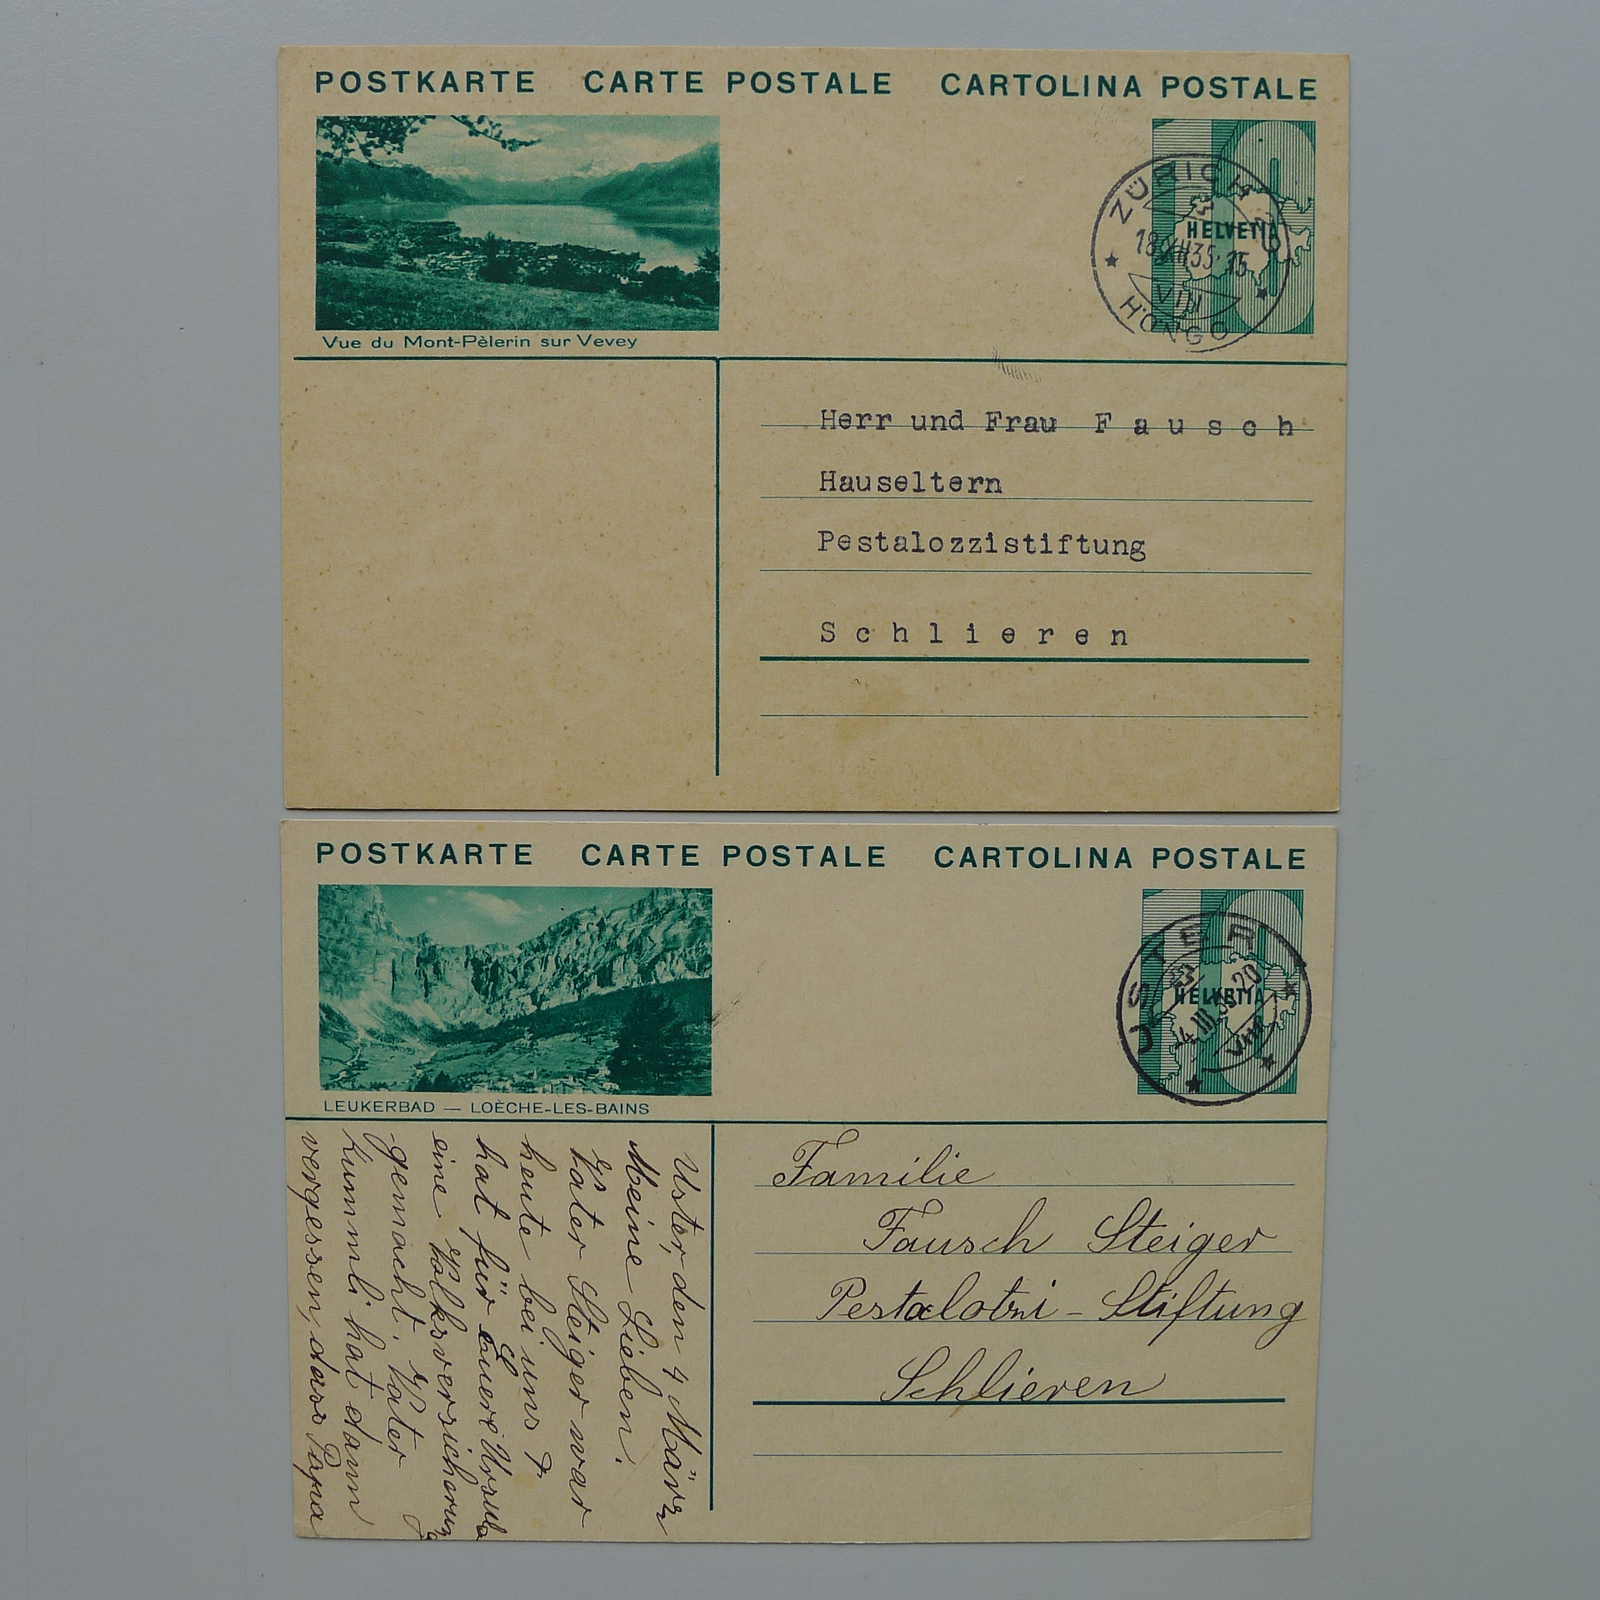 POSTKARTE CARTE POSTALE CARTOLINA POSTALE
ZÜRICH
HELVETIA
18.XII.35.15
VIII
HÖNGG
Vue du Mont-Pèlerin sur Vevey
Herr und Frau F a u s c h
Hauseltern
Pestalozzistiftung
S c h l i e r e n
POSTKARTE CARTE POSTALE CARTOLINA POSTALE
10
USTER
HELVETIA
LEUKERBAD — LOÈCHE-LES-BAINS
Familie
Fausch Steiger
Pestalotzi - Stiftung
Schlieren
Uster, den 4 März
Meine Lieben!
Vater Steiger war
heute bei uns &
hat für Euere Ursula
eine Volksversicherung
gemacht. Vater
Kummli hat dann
vergessen, dass Papa